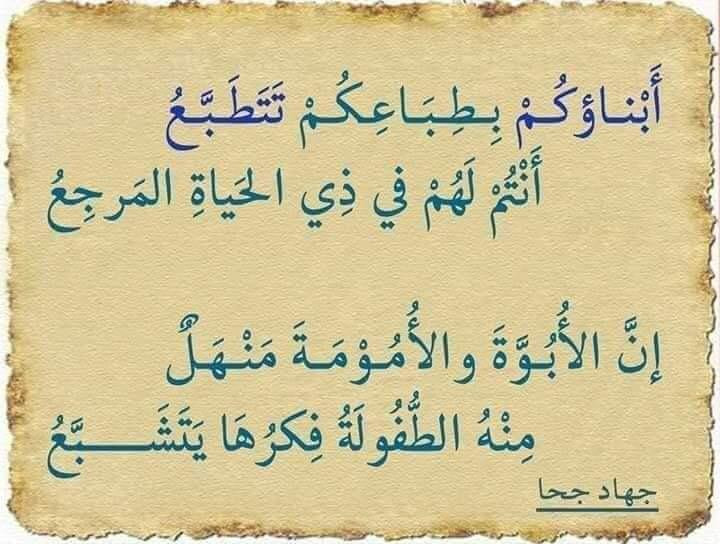 أَبْنـاؤكُـمْ بِـطِـبَـاعِـكُـمْ تَتَطَـبَّـعُ
أَنْتُمْ لَهُمْ في ذِي الحَياةِ المَرجِعُ
إنَّ الأُبُـوَّةَ والأُمُـوْمَـةَ مَنْـهَـلٌ
مِنْهُ الطُّفُولَةُ فِكرُهَا يَتَشَـــبَّعُ
جهاد جحا